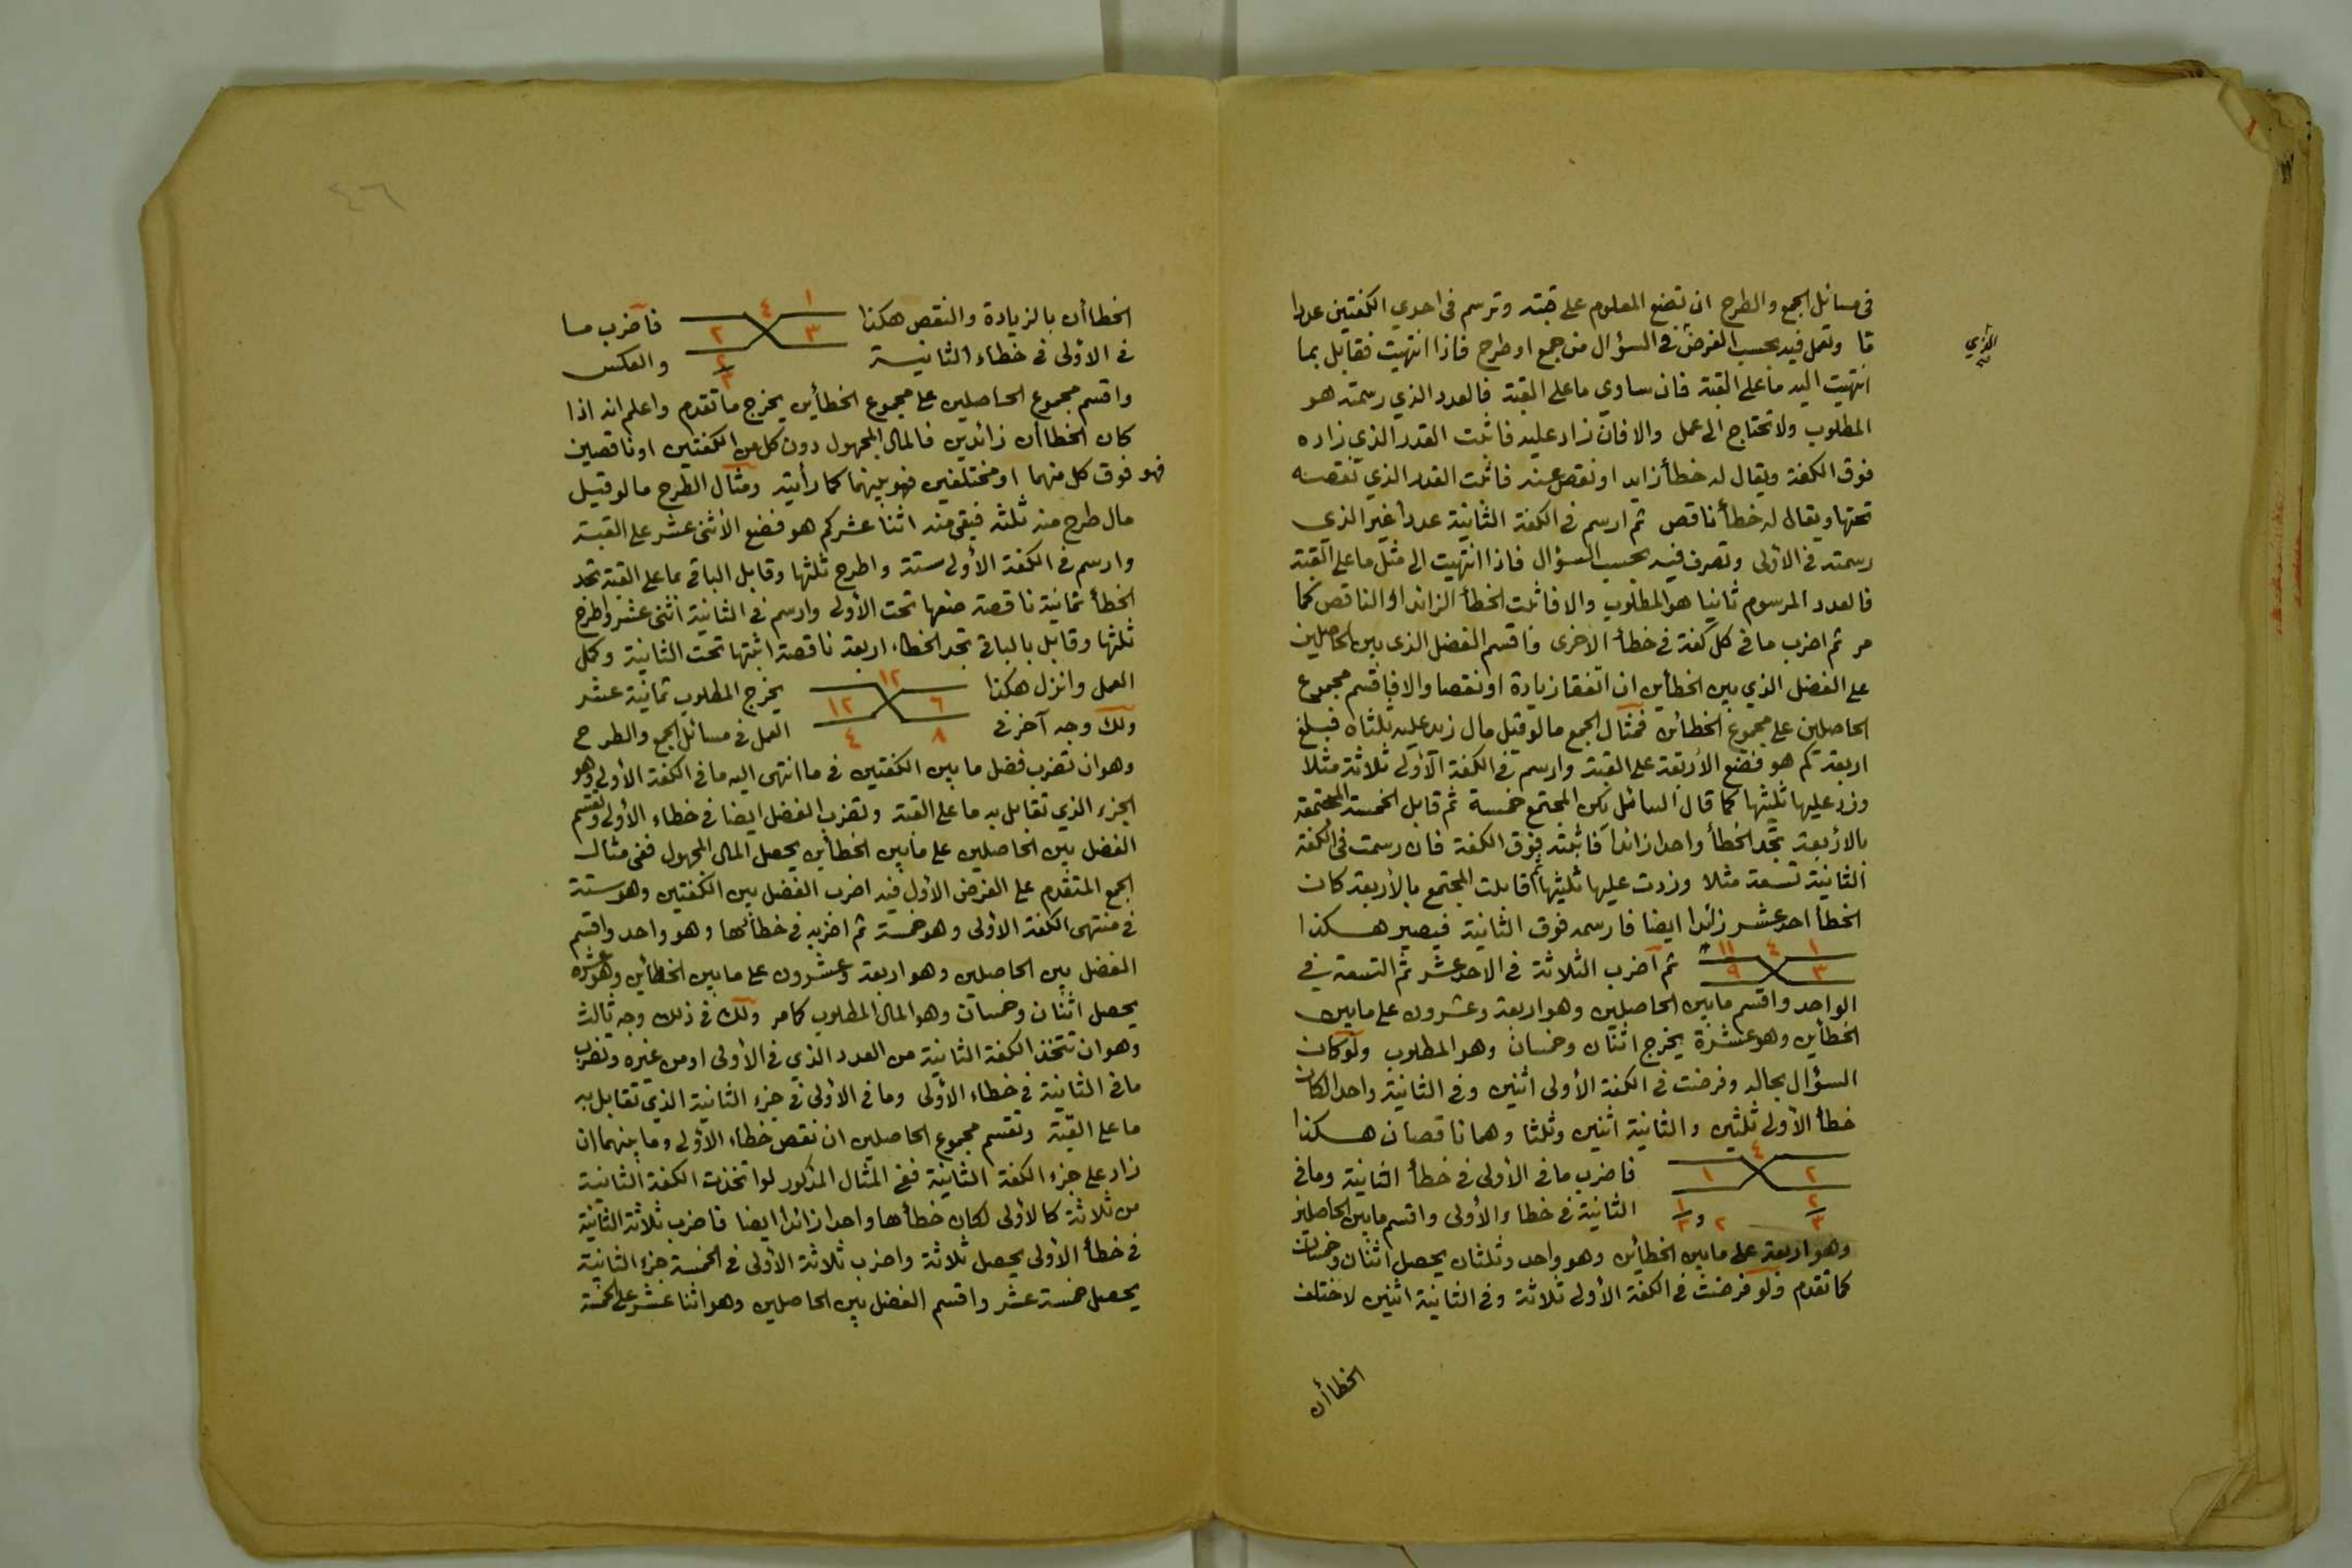 في مسائل الجمع والطرح ان تضع المعلوم على قبته وترسم في احدى الكفتين عددا
ما وتعمل فيه بحسب الفرض في السؤال من جمع او طرح فاذا انتهيت فقابل بما
انتهيت اليه ما على القبة فان ساوي ما على القبة فالعدد الذي رسمته هو
المطلوب ولا تحتاج الى عمل والا فان زاد عليه فاثبت القدر الذي زاده
فوق الكفة ويقال له خطأ زايد او نقص عنه فاثبت القدر الذي نقصه
تحتها ويقال له خطأ ناقص ثم ارسم في الكفة الثانية عددا غير الذي
رسمته في الاولى وتصرف فيه بحسب السؤال فاذا انتهيت الى مثل ما على القبة
فالعدد المرسوم ثانيا هو المطلوب والا فاثبت الخطأ الزائد او الناقص كما
مر ثم اضرب ما في كل كفة في خطأ الاخرى واقسم الفضل الذي بين الحاصلين
على الفضل الذي بين الخطأين ان اتفقا زيادة او نقصا والا فاقسم مجموع
الحاصلين على مجموع الخطائين فمثال الجمع ما لو قيل مال زيد عليه ثلثاه فبلغ
اربعة كم هو فضع الأربعة على القبة وارسم في الكفة الأولى ثلاثة مثلا
وزد عليها ثلثيها كما قال السائل يكن المجتمع خمسة ثم قابل الخمسة المجتمعة
بالأربعة تجد الخطأ واحدا زائدا فاثبته فوق الكفة فان رسمت في الكفة
الثانية تسعة مثلا وزدت عليها ثلثيها ثم قابلت المجتمع بالأربعة كان
الخطأ احد عشر زائدا ايضا فارسمه فوق الثانية فيصير هكذا
١ ٤ ١١
٣ ٩ ثم اضرب الثلاثة في الاحد عشر ثم التسعة في
الواحد واقسم ما بين الحاصلين وهو اربعة وعشرون على ما بين
الخطأين وهو عشرة يخرج اثنان وخمسان وهو المطلوب ولو كان
السؤال بحاله وفرضت في الكفة الأولى اثنين وفي الثانية واحدا لكان
خطأ الأولى ثلثين والثانية اثنين وثلثا وهما ناقصان هكذا
٤
٢ ١ فاضرب ما في الأولى في خطأ الثانية وما في
٢/٣ ٢ و ١/٣ الثانية في خطاء الأولى واقسم ما بين الحاصلين
وهو اربعة على ما بين الخطأين وهو واحد وثلثان يحصل اثنان وخمسان
كما تقدم ولو فرضت في الكفة الأولى ثلاثة وفي الثانية اثنين لاختلف
الخطاأن
٤٦
الخطاأن بالزيادة والنقص هكذا ١ ٤ ٣ ٢ فاضرب ما
في الأولى في خطاء الثانية ٢/٣ والعكس
واقسم مجموع الحاصلين على مجموع الخطأين يخرج ما تقدم واعلم انه اذا
كان الخطاأن زائدين فالمال المجهول دون كل من الكفتين او ناقصين
فهو فوق كل منهما او مختلفين فهو بينهما كما رأيته ومثال الطرح ما لو قيل
مال طرح منه ثلثه فبقي منه اثنا عشر كم هو فضع الأثنى عشر على القبة
وارسم في الكفة الأولى ستة واطرح ثلثها وقابل الباقي بما على القبة تجد
الخطأ ثمانية ناقصة ضعها تحت الأولى وارسم في الثانية اثنى عشر واطرح
ثلثها وقابل بالباقي تجد الخطاء اربعة ناقصة اثبتها تحت الثانية وكمل
العمل وانزل هكذا ١٢ يخرج المطلوب ثمانية عشر
٦ ١٢
ولك وجه آخر في ٨ ٤ العمل في مسائل الجمع والطرح
وهو ان تضرب فضل ما بين الكفتين في ما انتهى اليه ما في الكفة الأولى وهو
الجزء الذي تقابل به ما على القبة وتضرب الفضل ايضا في خطاء الأولى وتقسم
الفضل بين الحاصلين على ما بين الخطأين يحصل المال المجهول ففي مثال
الجمع المتقدم على الفرض الأول فيه اضرب الفضل بين الكفتين وهو ستة
في منتهى الكفة الأولى وهو خمسة ثم اضربه في خطائها وهو واحد واقسم
الفضل بين الحاصلين وهو اربعة وعشرون على ما بين الخطأين وهو عشرة
يحصل اثنان وخمسان وهو المال المطلوب كما مر ولك في ذلك وجه ثالث
وهو ان تتخذ الكفة الثانية من العدد الذي في الأولى او من غيره وتضرب
ما في الثانية في خطاء الأولى وما في الأولى في جزء الثانية الذي تقابل به
ما على القبة وتقسم مجموع الحاصلين ان نقص خطاء الأولى وما بينهما ان
زاد على جزء الكفة الثانية ففي المثال المذكور لو اتخذت الكفة الثانية
من ثلاثة كالأولى لكان خطأها واحدا زائدا ايضا فاضرب ثلاثة الثانية
في خطأ الأولى يحصل ثلاثة واضرب ثلاثة الأولى في الخمسة جزء الثانية
يحصل خمسة عشر واقسم الفضل بين الحاصلين وهو اثنا عشر على الخمسة